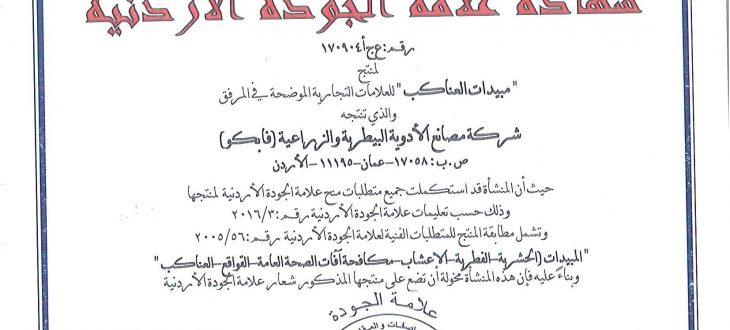 شهادة علامة الجودة الأردنية
رقم: ع ج أ ١٧٠٩٠٤
لمنتج
"مبيدات العناكب" للعلامات التجارية الموضحة في المرفق
والذي تنتجه
شركة مصانع الأدوية البيطرية والزراعية (فابكو)
ص.ب: ١٧٠٥٨-عمان-١١١٩٥-الأردن
حيث أن المنشأة قد استكملت جميع متطلبات منح علامة الجودة الأردنية لمنتجها
وذلك حسب تعليمات علامة الجودة الأردنية رقم: ٢٠١٦/٣
وتشمل مطابقة المنتج للمتطلبات الفنية لعلامة الجودة الأردنية رقم: ٢٠٠٥/٥٦
"المبيدات (الحشرية-الفطرية-الاعشاب-مكافحة آفات الصحة العامة-القواقع-العناكب"
وبناءً عليه فإن هذه المنشأة مخولة أن تضع على منتجها المذكور شعار علامة الجودة الأردنية
علامة الجودة